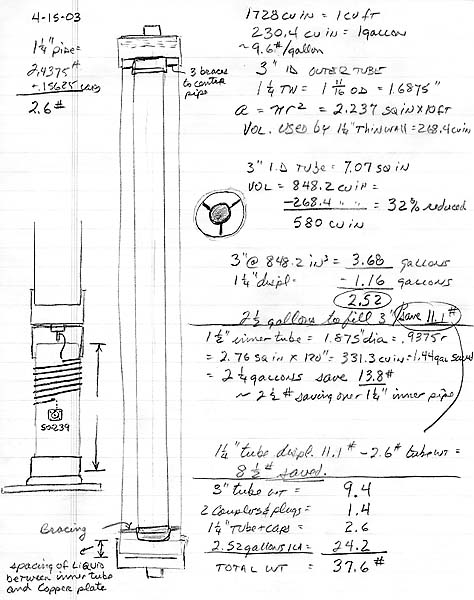 4-15-03
1¼" pipe =
2.4375#
+.15625 caps
2.6#
3 braces
to center
pipe
1728 cu in = 1 cu ft
230.4 cu in = 1 gallon
~ 9.6#/gallon
3" ID OUTER TUBE
1¼ TW = 1 11/16 OD = 1.6875"
a = πr² = 2.237 sq in x 10ft
VOL. USED by 1¼" Thinwall = 268.4 cu in
3" I.D TUBE = 7.07 sq in
VOL = 848.2 cu in =
-268.4 " " = 32% reduced
580 cu in
3" @ 848.2 in³ = 3.68 gallons
1¼" displ. - 1.16 gallons
2.52
2½ gallons to fill 3" save 11.1#
1½" inner tube = 1.875" dia = .9375 r
= 2.76 sq in x 120" = 331.3 cu in = 1.44 gal saved
= 2¼ gallons save 13.8#
~ 2½ # saving over 1¼" inner pipe
SO-239
1¼" tube displ. 11.1# - 2.6# tube wt =
8½# saved.
3" tube wt = 9.4
2 Couplers & plugs = 1.4
1¼" Tube + caps = 2.6
2.52 gallons = 24.2
TOTAL WT = 37.6#
Bracing
spacing of Liquid
between inner tube
and Copper plate